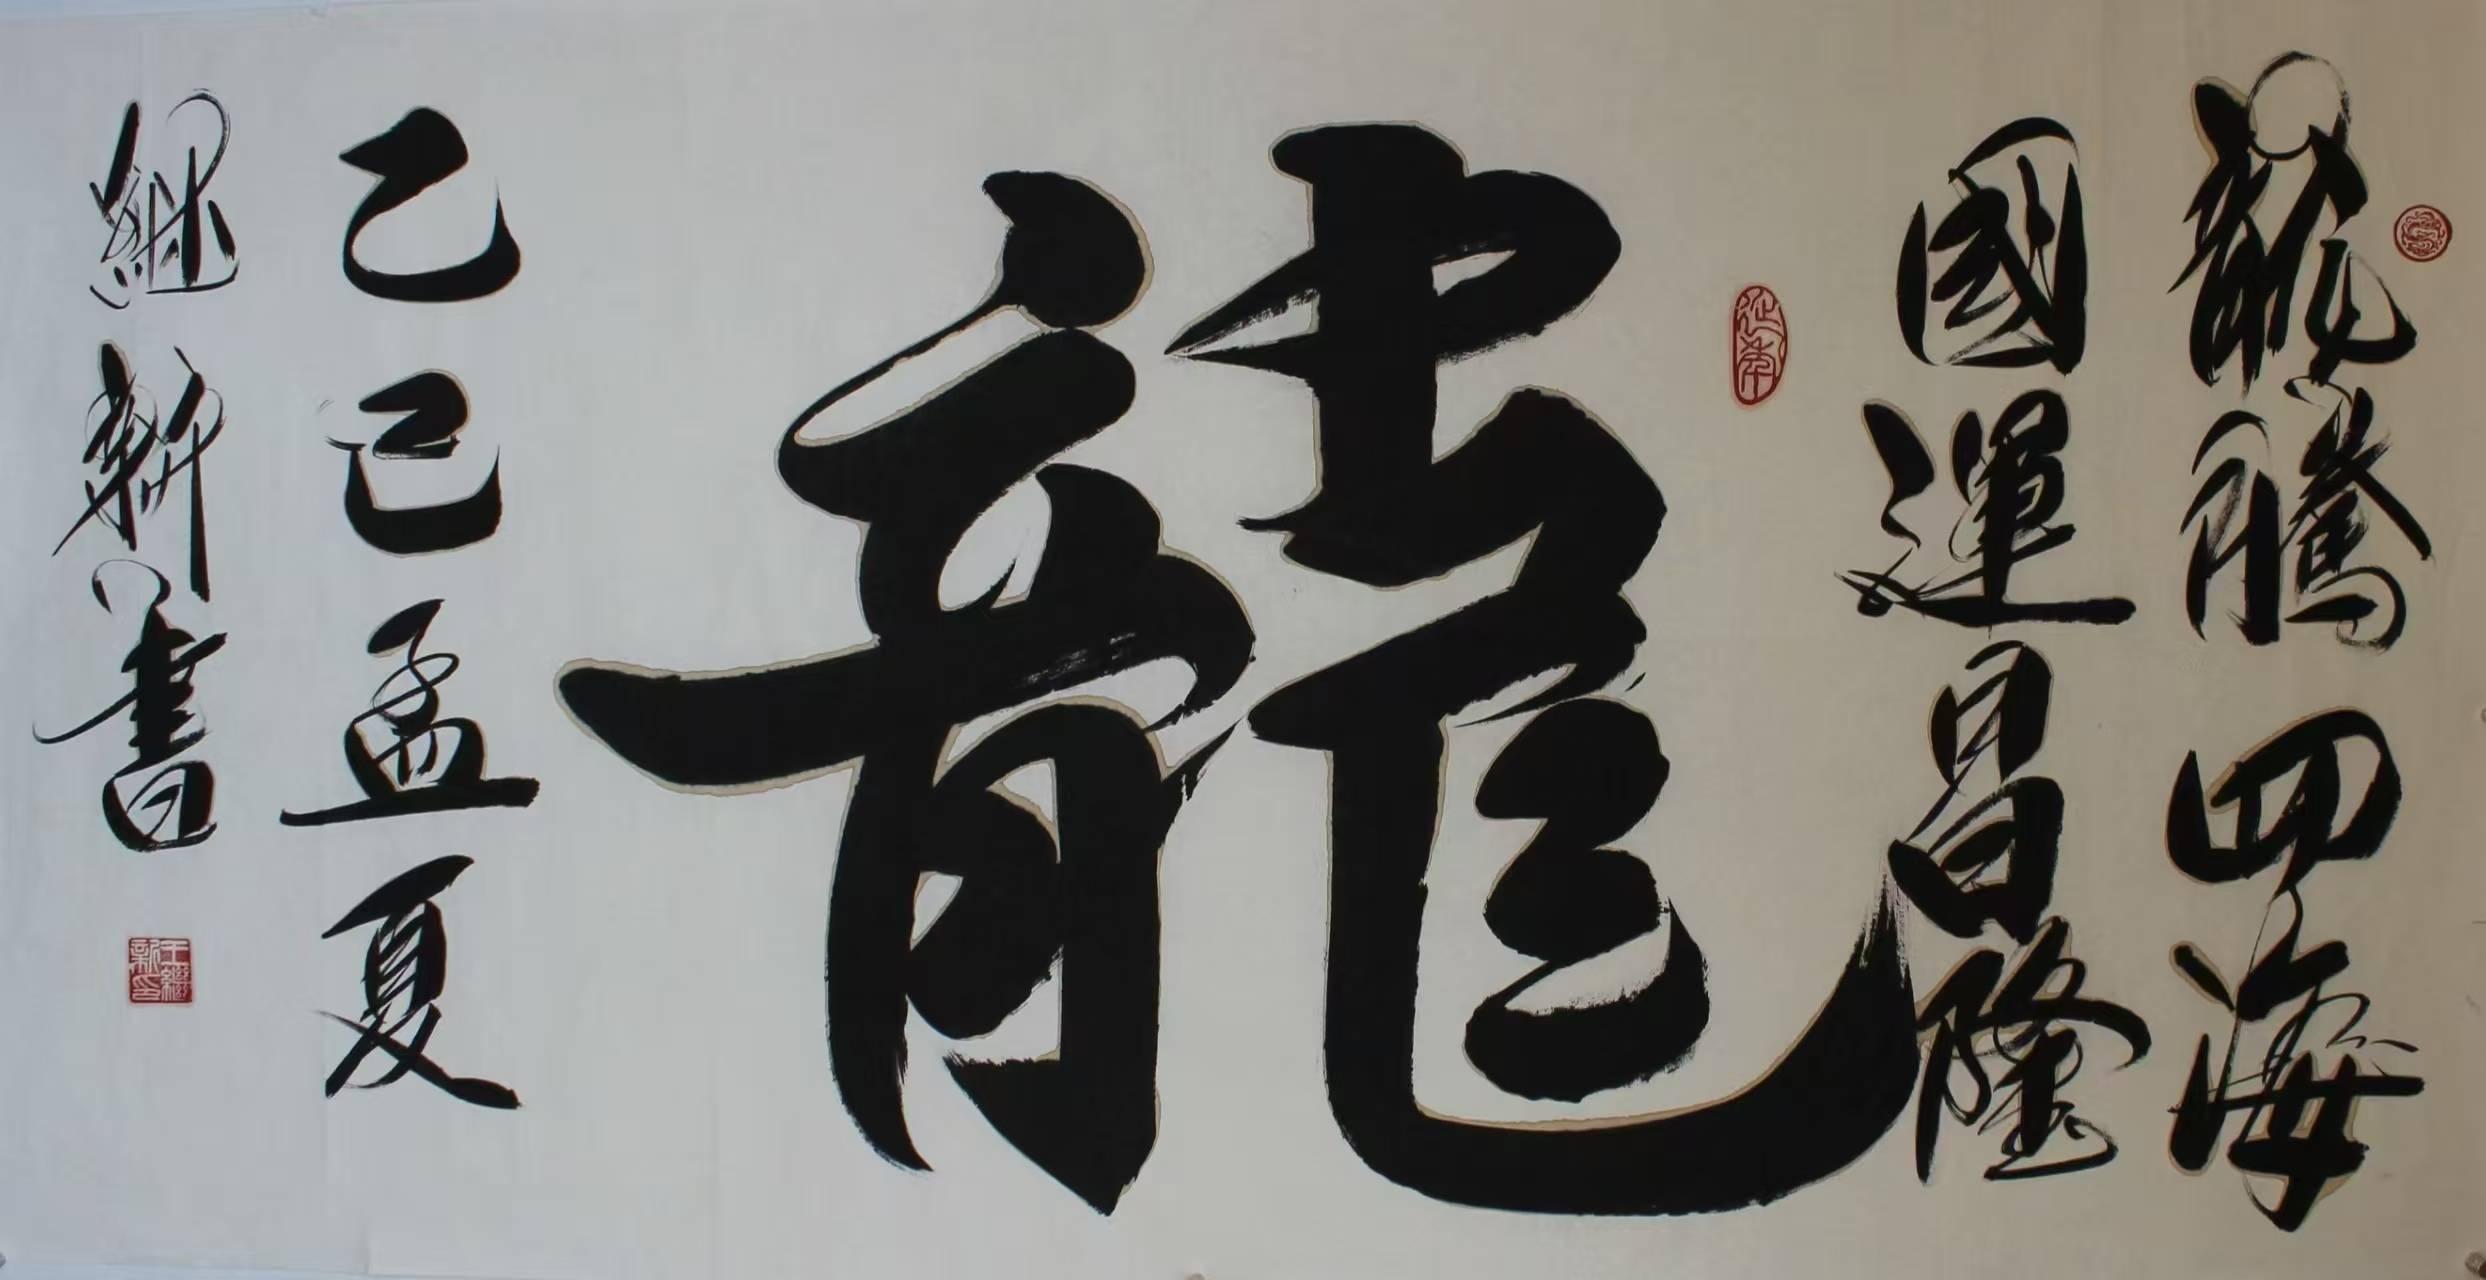 龍騰四海
國運昌隆
延年
龍
乙巳孟夏
繼新書
王繼新印